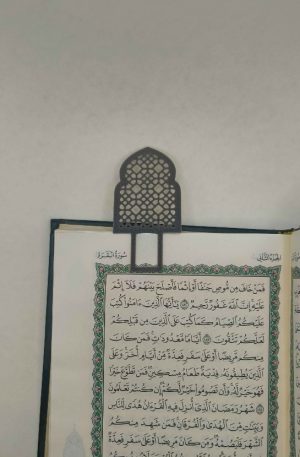 سورة البقرة
الجزء الثاني
فمن خاف من موص جنفا أو إثما فأصلح بينهم فلا إثم
عليه إن الله غفور رحيم يأيها الذين ءامنوا كتب
عليكم الصيام كما كتب على الذين من قبلكم
لعلكم تتقون أياما معدودات فمن كان
منكم مريضا أو على سفر فعدة من أيام أخر وعلى
الذين يطيقونه فدية طعام مسكين فمن تطوع خيرا
فهو خير له وأن تصوموا خير لكم إن كنتم تعلمون
شهر رمضان الذي أنزل فيه القرءان هدى للناس
وبينات من الهدى والفرقان فمن شهد منكم
الشهر فليصمه ومن كان مريضا أو على سفر فعدة